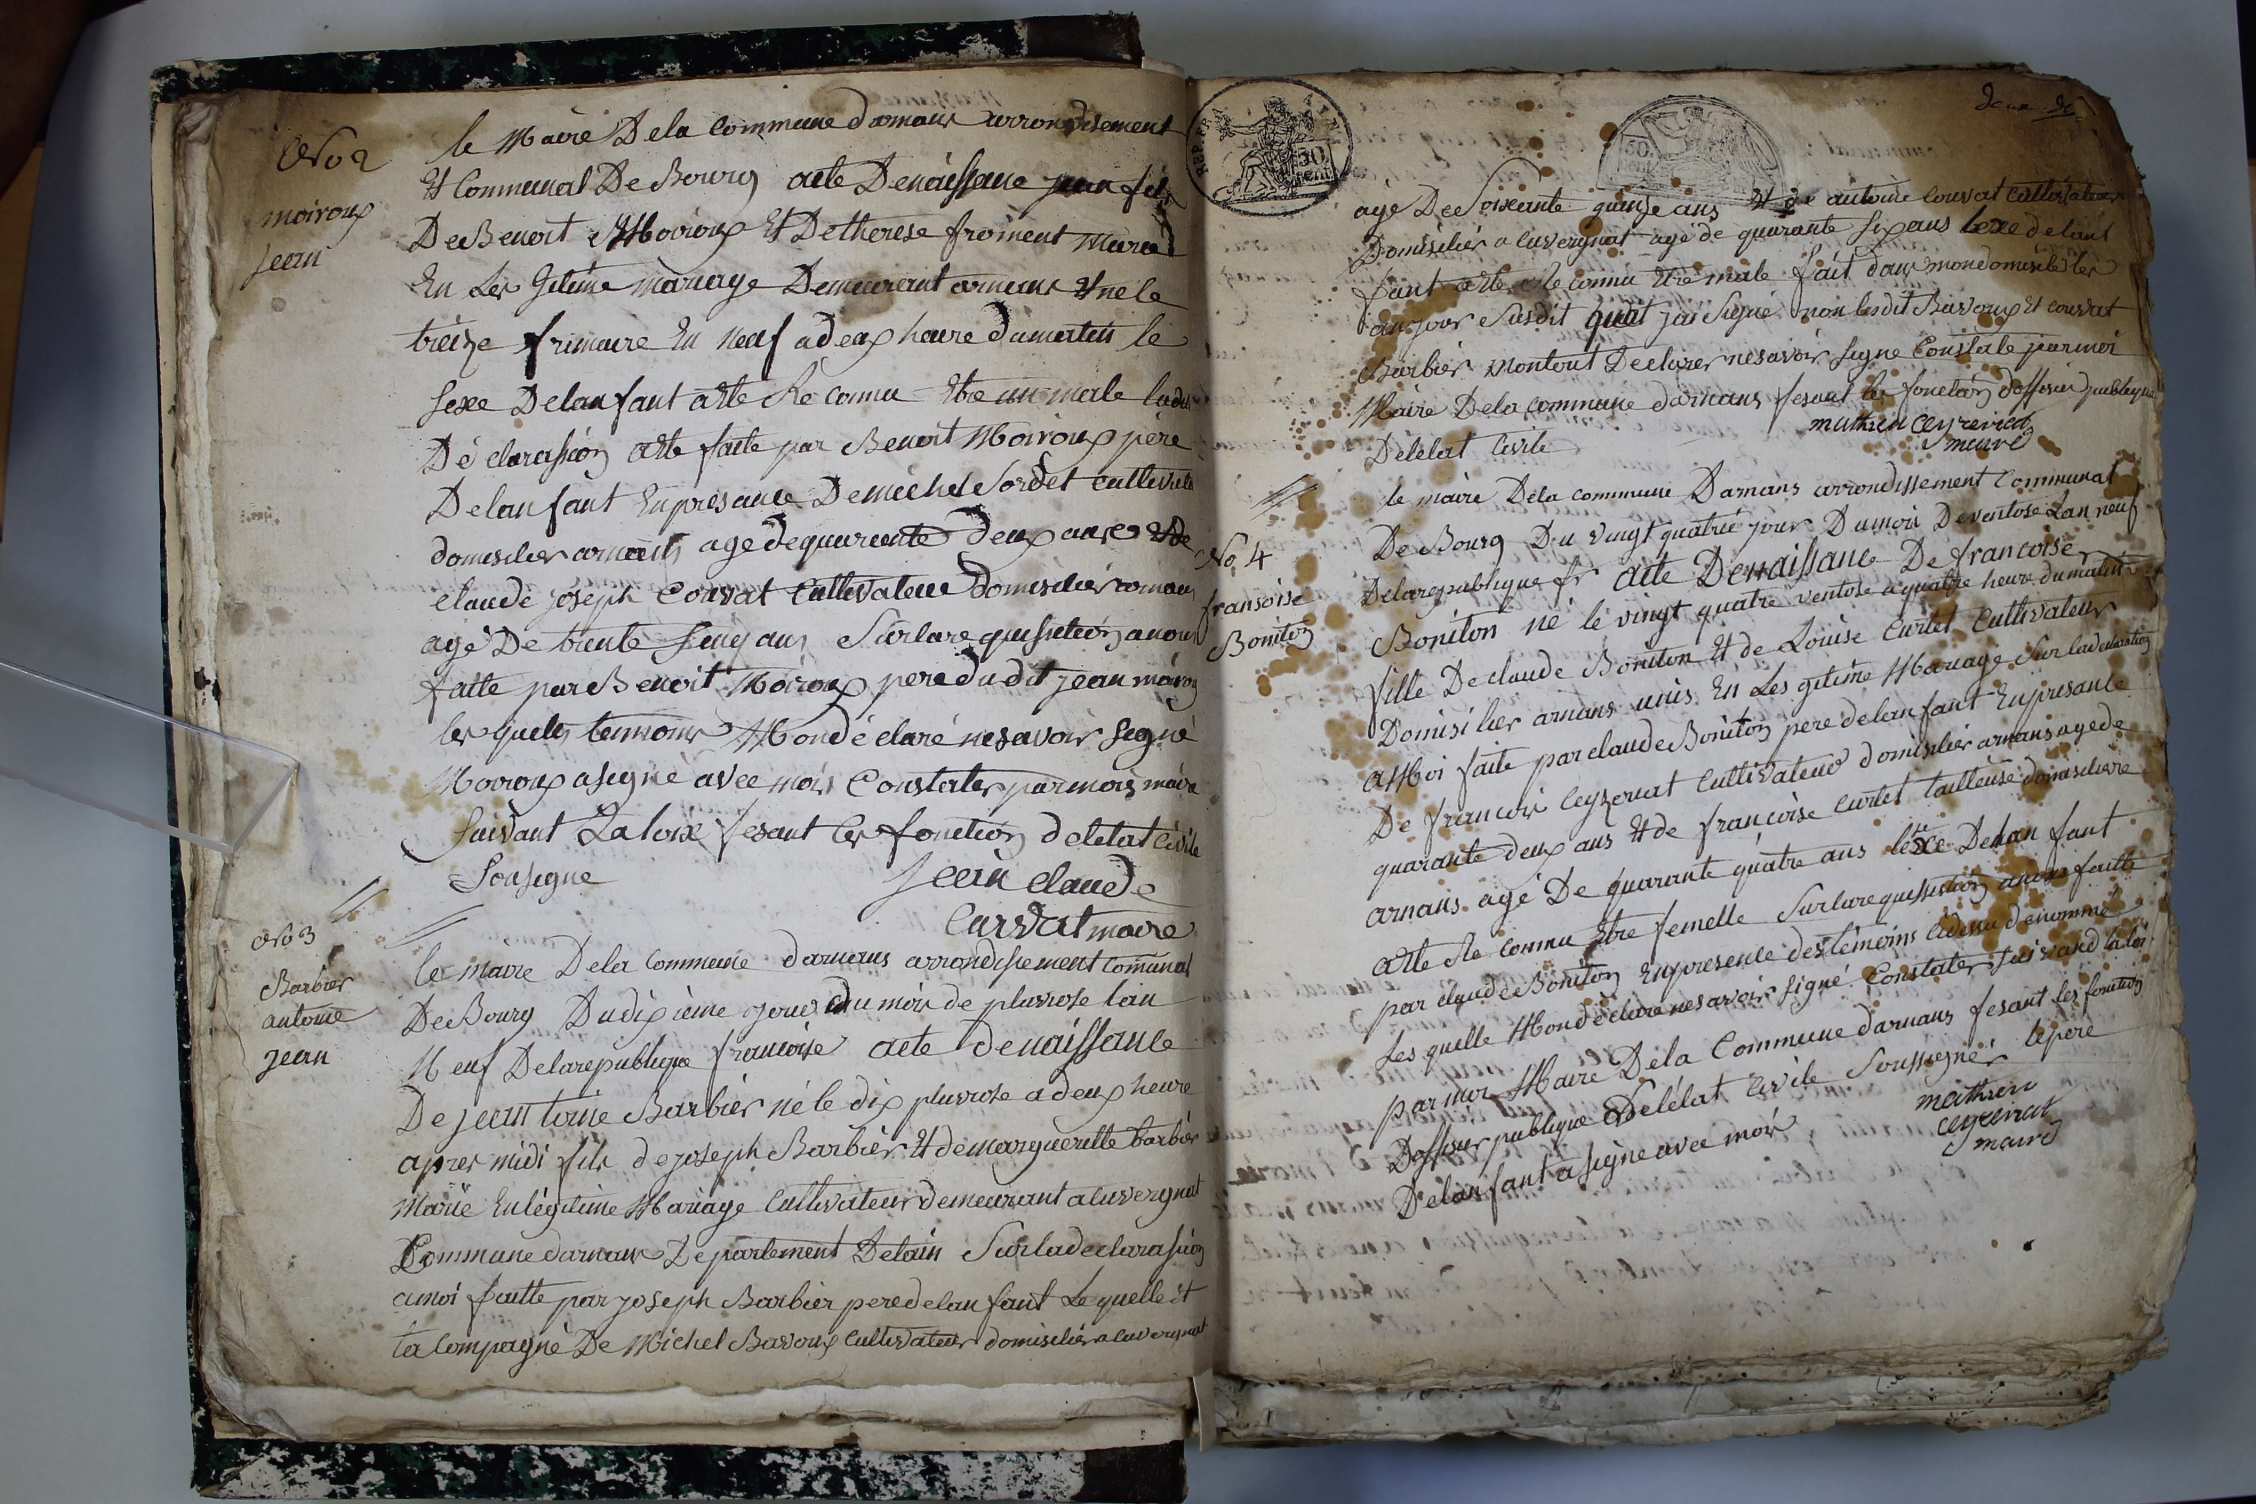 No 2
moiroux
jean
le Maire De la Commune darnans arrondisement
Et Communal De Bourg acte De naissane jean fils
De Benoit Moiroux Et De therese froment Marie
En Les Gitime mariage Demeurant arnans Et ne le
treize frimaire En neuf a deux heure du mattin le
sexe De lanfant a Ete Re connu Etre un male ladite
Dé clarasion a Ete faite par Benoit Moiroux père
De lanfant En presance De michel Sordet cultivateur
domisilier arnans age de quarente deux ans Et De
claude joseph Convat Cultivateur domisilier arnans
agé De trente sinq ans Sur la re quisition a nous
faitte par Benoit Moiroux pere du dit jean moiroux
les quels temoins Mon dé claré ne savoir signé
Moiroux a signé avec moi Constater par moi maire
suivant La loix fesant les fonction de letat Civile
Sousigne
jean claude
Curvat maire
No 3
Barbier
antoine
jean
le maire De la Commune darnans arrondissement Comunal
De Bourg Du dixième jour du mois de pluviose lan
Neuf De la republique francoise acte de naissance
De jean toine Barbier né le dix pluviose a deux heure
apres midi fils de joseph Barbier Et de marguerette barbier
Marié En légitime Mariage Cultivateur demeurant a luvergnat
Commune darnans Département De lain Sur la declarasion
a moi faitte par joseph Barbier pere de lan fant Le quelle et
ta compagné De Michel Bavoux Cultivateur domisilier a luvergnat
REP. FRA. AIN
50 cent.
50 cent.
agé De Soixante quinze ans Et de antoine Convat Cultivateur
Domisilier a luvergnat agé de quarante six ans le sexe de lant
fant a Ete re connu Etre male fait dans mon domisile les
an jour Susdit quoit jai Signé non lesdit Bavoux Et convat
Barbier Mont tout De clarer ne savoir signe Constate par moi
Maire De la commune darnans fesant les fonction dofficier publique
De letat Civile
mathieu Ceyzeriat
maire
No 4
fransoise
Boniton
le maire De la commune Darnans arrondissement Communal
De Bourg Du vingt quatrié jour Du mois De ventose Lan neuf
De la republique fr acte De naissance De francoise
Boniton né le vingt quatre ventose a quatre heure du matin
fille De claude Boniton Et de Louise Curtet Cultivateur
Domisilier arnans unis En Les gitime Mariage Sur la declaration
a Moi faite par claude Boniton pere de lan fant En presance
De francois Ceyzeriat Cultivateur domisilier arnans age de
quarante deux ans Et de francoise Curtet tailleuse domisiliere
arnans agé De quarante quatre ans le sexe De lan fant
a Ete Re connu Etre femelle Sur la requisition a nous faitte
par claude Boniton En presence des temoins ci dessu denommé
Les quelle Mon dé clare ne savoir signé Constater suivand la loi
par moi Maire De la Commune darnans fesant les fonction
Dofficier publique De létat Civile Soussigné lepere
De lan fant a signe avec moi
mathieu
ceyzeriat
maire